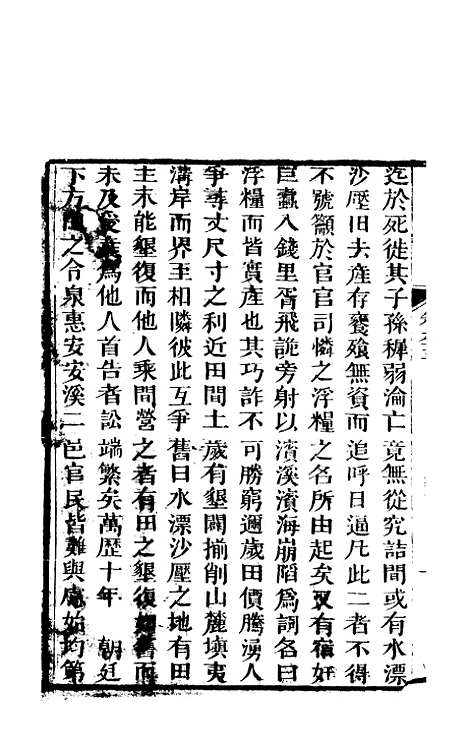 迄於死徙其子孫穉弱淪亡竟無從究詰間或有水漂
沙壓旧去產存饔飱無資而追呼日逼凡此二者不得
不號籲於官官司憐之浮糧之名所由起矣又有猾奸
巨蠹入錢里胥飛詭旁射以濱溪濱海崩陷為詞名曰
浮糧而皆實產也其巧詐不可勝窮邇歲田價騰湧人
爭尋丈尺寸之利近田間土歲有墾闢揃削山麓塡夷
溝岸而界至相隣彼此互爭舊日水漂沙壓之地有田
主未能墾復而他人乘間營之者有田之墾復如舊而
未及受產為他人首告者訟端繁矣萬歷十年 朝廷
下方田之令泉惠安安溪二邑官民皆難與慮始均第